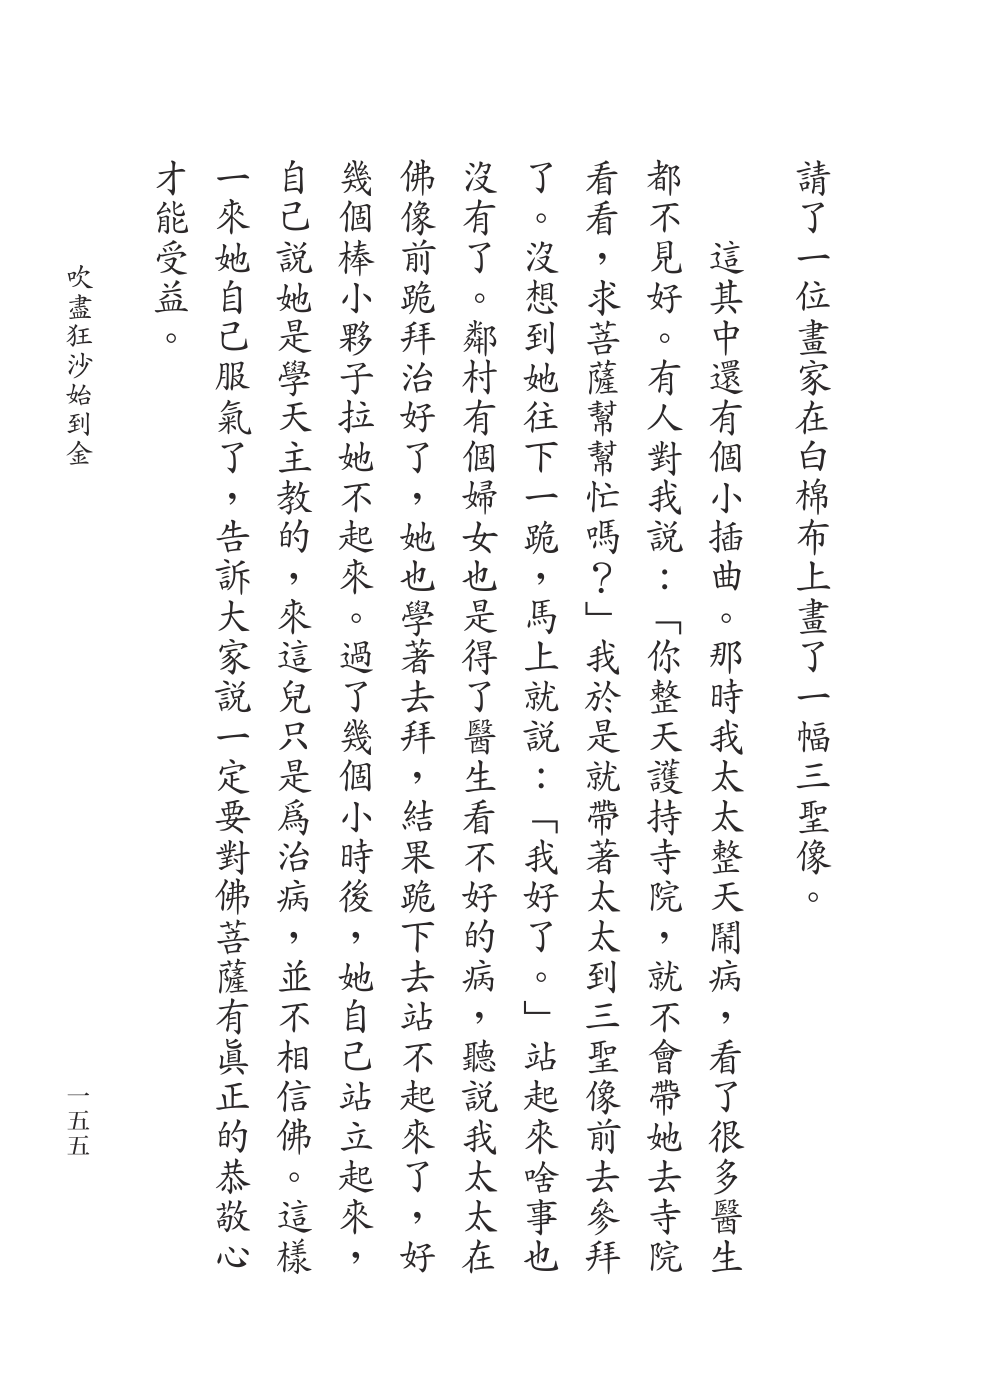 請了一位畫家在白棉布上畫了一幅三聖像。
這其中還有個小插曲。那時我太太整天鬧病，看了很多醫生
都不見好。有人對我説：「你整天護持寺院，就不會帶她去寺院
看看，求菩薩幫幫忙嗎？」我於是就帶著太太到三聖像前去參拜
了。沒想到她往下一跪，馬上就説：「我好了。」站起來啥事也
沒有了。鄰村有個婦女也是得了醫生看不好的病，聽説我太太在
佛像前跪拜治好了，她也學著去拜，結果跪下去站不起來了，好
幾個棒小夥子拉她不起來。過了幾個小時後，她自己站立起來，
自己説她是學天主教的，來這兒只是爲治病，並不相信佛。這樣
一來她自己服氣了，告訴大家説一定要對佛菩薩有眞正的恭敬心
才能受益。
吹盡狂沙始到金
一五五